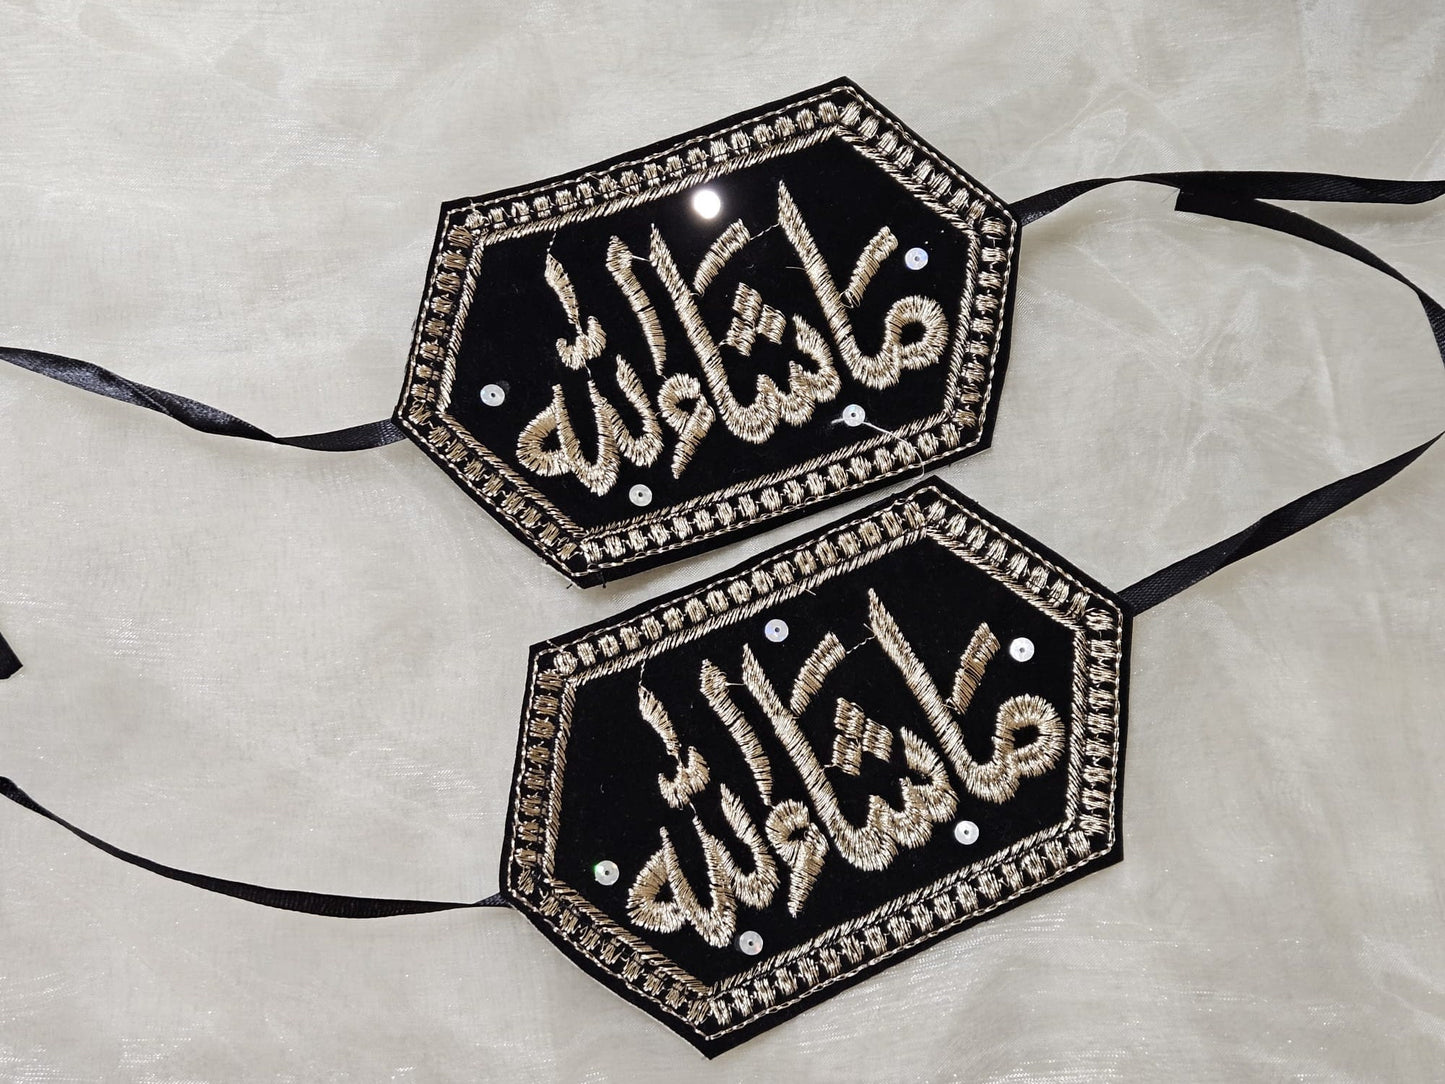 ماشاء الله
ماشاء الله